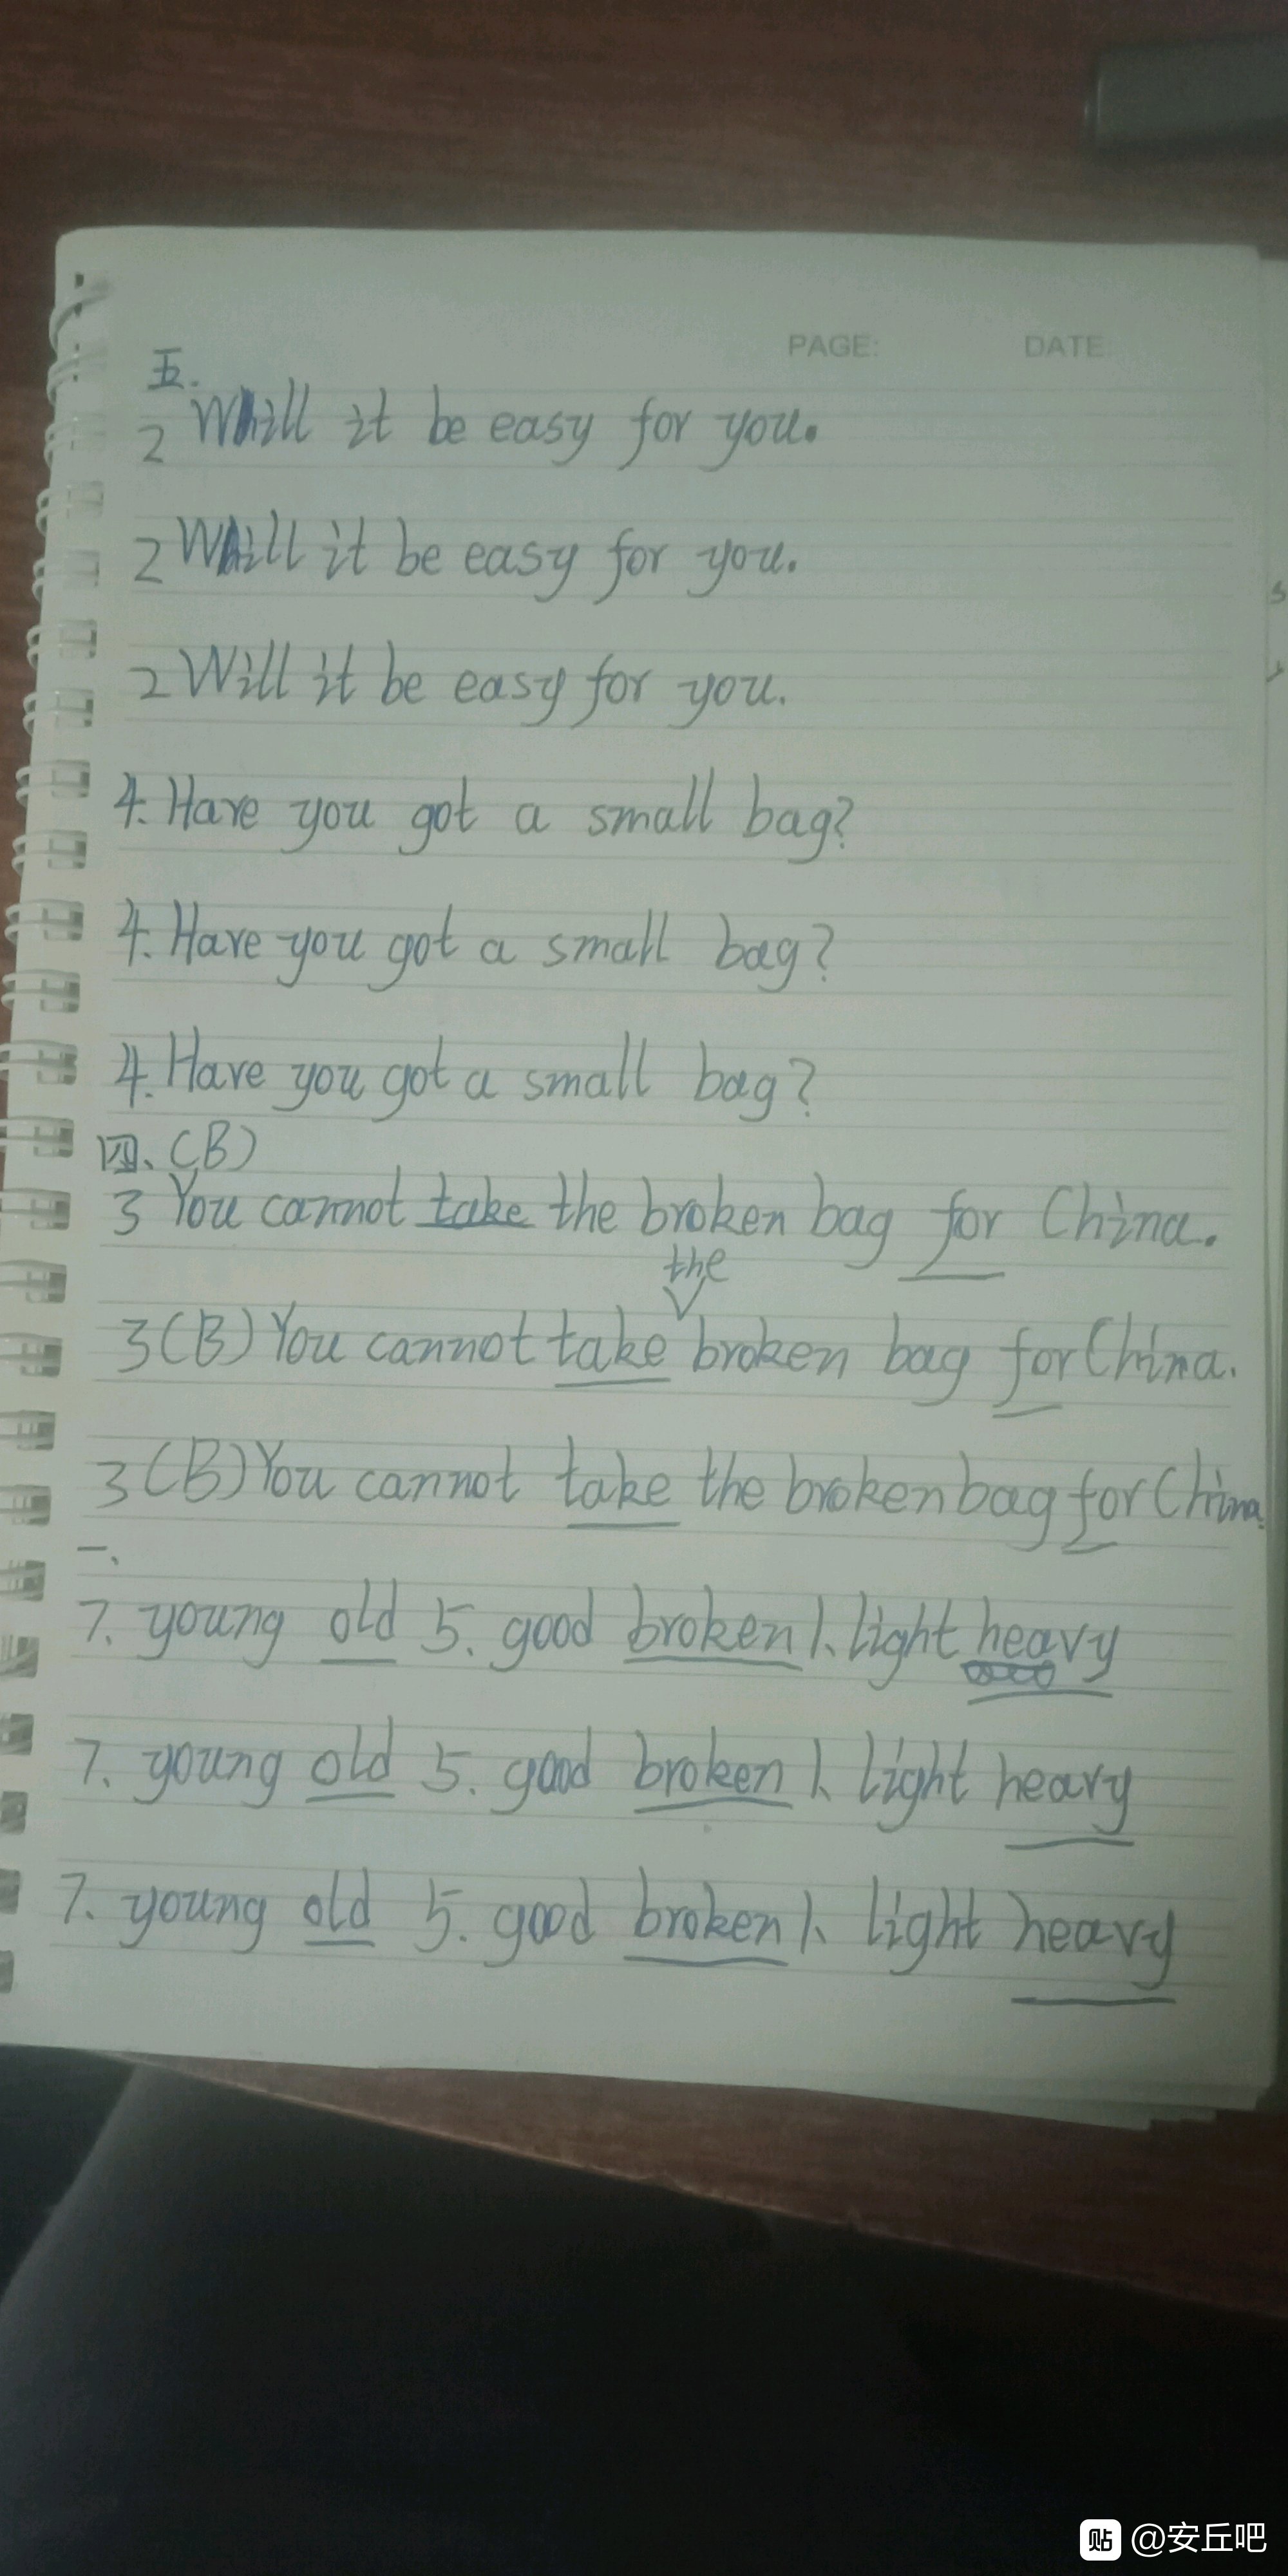 PAGE: DATE
五.
2 Will it be easy for you.
2 Will it be easy for you.
2 Will it be easy for you.
4. Have you got a small bag?
4. Have you got a small bag?
4. Have you got a small bag?
四、(B)
3 You cannot take the broken bag for China.
the
3(B) You cannot take broken bag for China.
3(B) You cannot take the broken bag for China.
一、
7. young old 5. good broken 1、light heavy
7. young old 5. good broken 1、light heavy
7. young old 5. good broken 1、light heavy
贴 @安丘吧